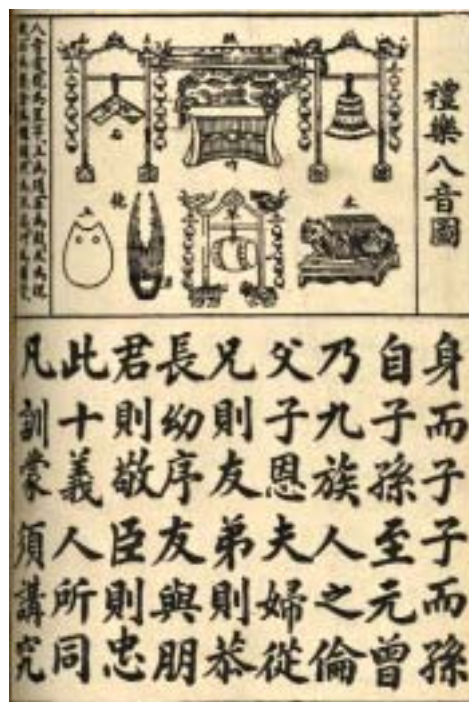 禮樂八音圖
石
竹
木
革
土
身而子子而孫
自子孫至元曾
乃九族人之倫
父子恩夫婦從
兄則友弟則恭
長幼序友與朋
君則敬臣則忠
此十義人所同
凡訓蒙須講究